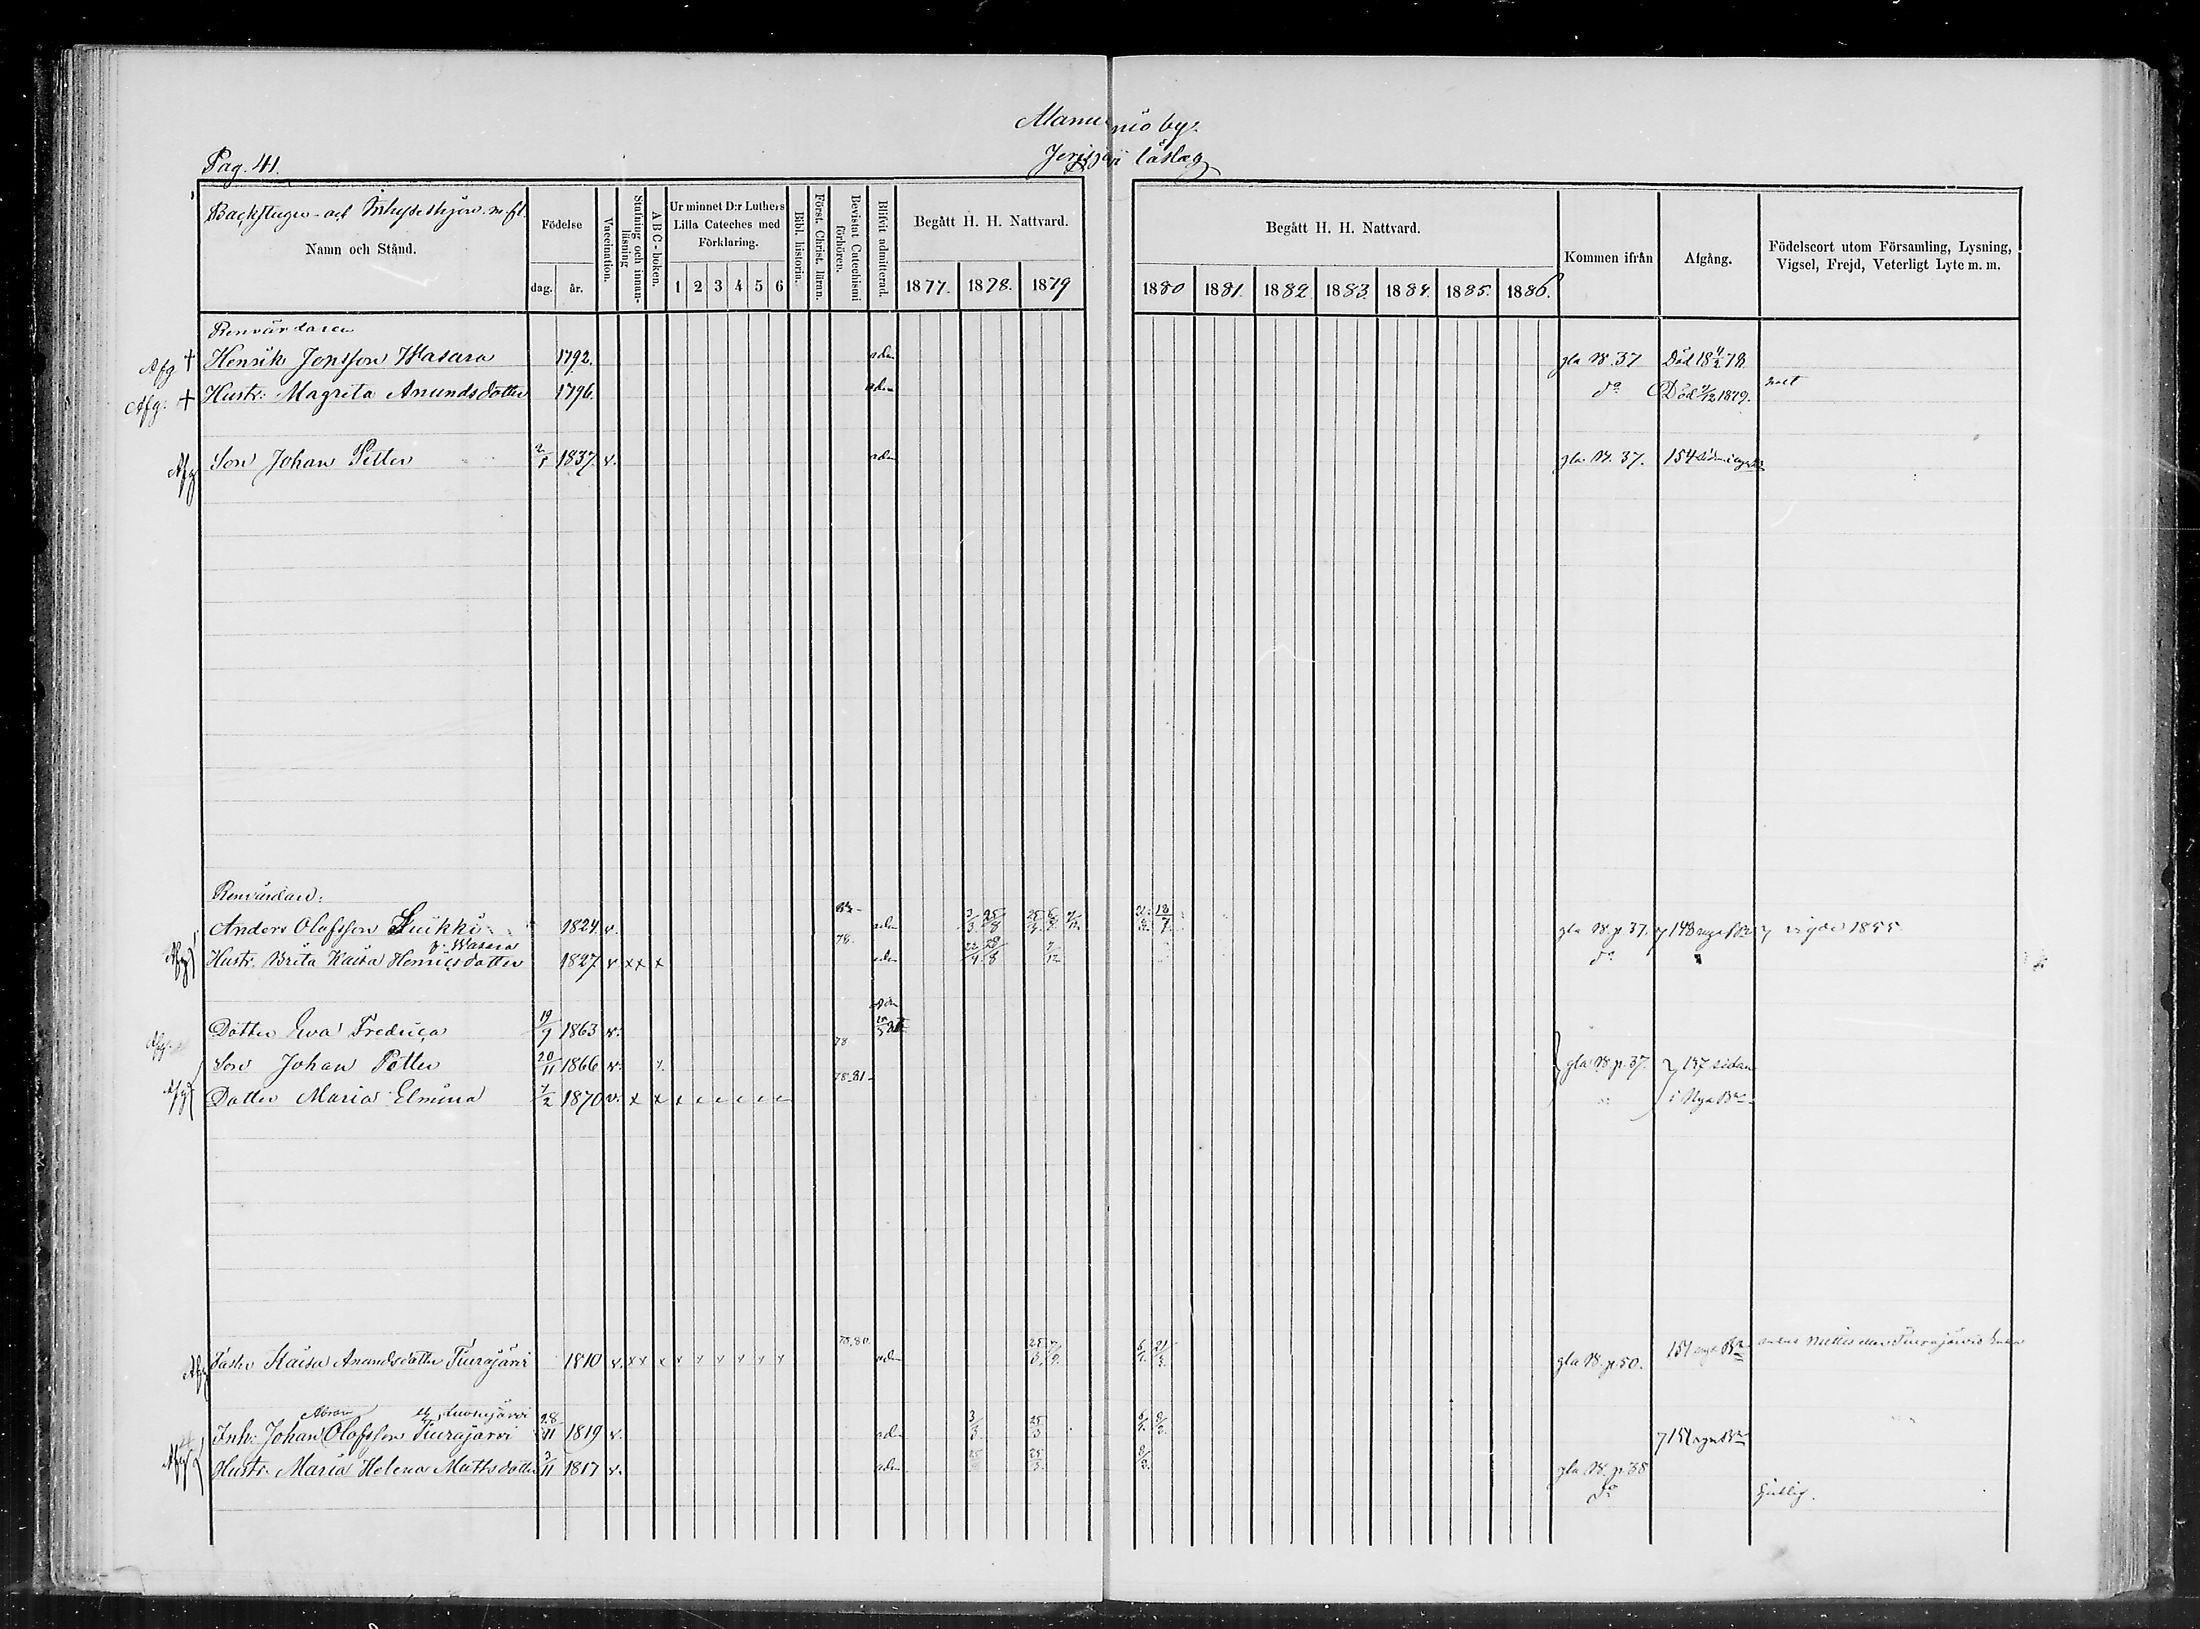 Pag. 41.
Muonio by.
Jerisjärvi läslag
Backstugu- och Inhyseshjon m.fl.
Namn och Stånd.
Födelse
dag.
år.
Vaccination.
Stafning och innan-
läsning
ABC-boken.
Ur minnet D:r Luthers
Lilla Cateches med
Förklaring.
1 2 3 4 5 6
Bibl. historia.
Först. Christ. läran.
Bevistat Catechismi
förhören.
Blifvit admitterad.
Begått H. H. Nattvard.
1877. 1878. 1879
Begått H. H. Nattvard.
1880 1881. 1882 1883. 1884. 1885. 1886.
Kommen ifrån
Afgång.
Födelseort utom Församling, Lysning,
Vigsel, Frejd, Veterligt Lyte m. m.
Renvårdaren
Afg + Henrik Jonsson Wasara 1792. adm gla B. 37 Död 18 4/2 78.
Afg. + Hustr. Magreta Anundsdotter 1796. adm do Död 1/12 1879.
Afg Son Johan Petter 2/5 1837. v. adm gla B. 37. 154 sidan i nya Bn
Renvårdare:
Anders Olofsson Suikki 1824. v. adm 2/3 25/8 25/3 7/12 18/7 gla B. p 37. 148 nya Bn vigde 1855
f. Wasara
Afg Hustr. Brita Kaisa Henricsdotter 1827 v x x x 78. adm 22/4 7/12 do
Afg. Dotter Eva Fredrica 19/9 1863 v. adm
Son Johan Petter 20/11 1866 v. 78 gla B. p. 37. 137 sidan
Afg Dotter Maria Elmina 7/2 1870 v. x x 78-81 i Nya Bn
Afg Kaisa Anundsdotter Tiurajärvi 1810 v. x x x 78.80 adm 25/3 7/9. 6/1 21/3 gla B. p. 50. 151 nya Bn Tiurajärvis Enka
Abram
Inh. Johan Olofsson Tiurajärvi 28/11 1819 v. adm 3/3 25/3 151 nya Bn
Afg Hustr. Maria Helena Mattsdotter 3/11 1817 v. adm 25/3 gla B. p 38
do